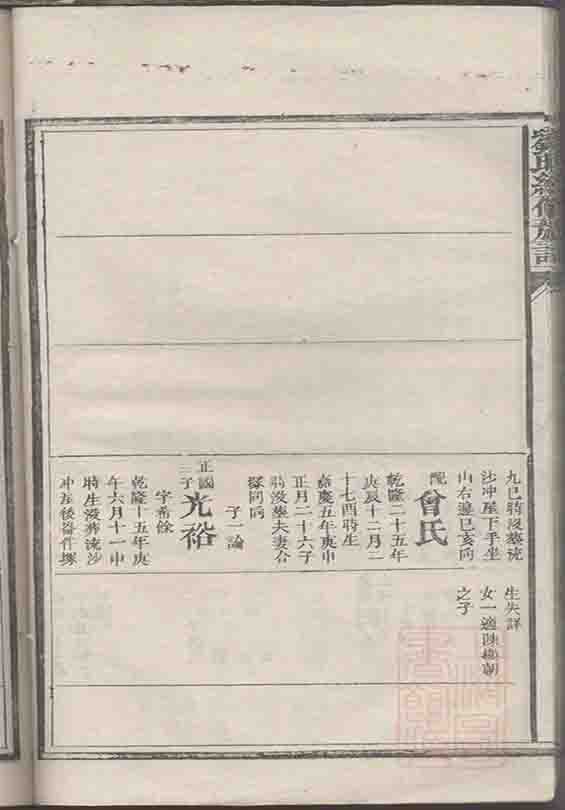 劉氏續修族譜
九巳時沒塟流
沙冲屋下手坐
山右邊巳亥向
配曾氏
乾隆二十五年
庚辰十二月二
十七酉時生
嘉慶五年庚申
正月二十六子
時沒塟夫妻合
塚同向
子一論
正國三子光裕
字希餘
乾隆十五年庚
午六月十一申
時生沒塟流沙
冲屋後
生失詳
女一適陳
之子